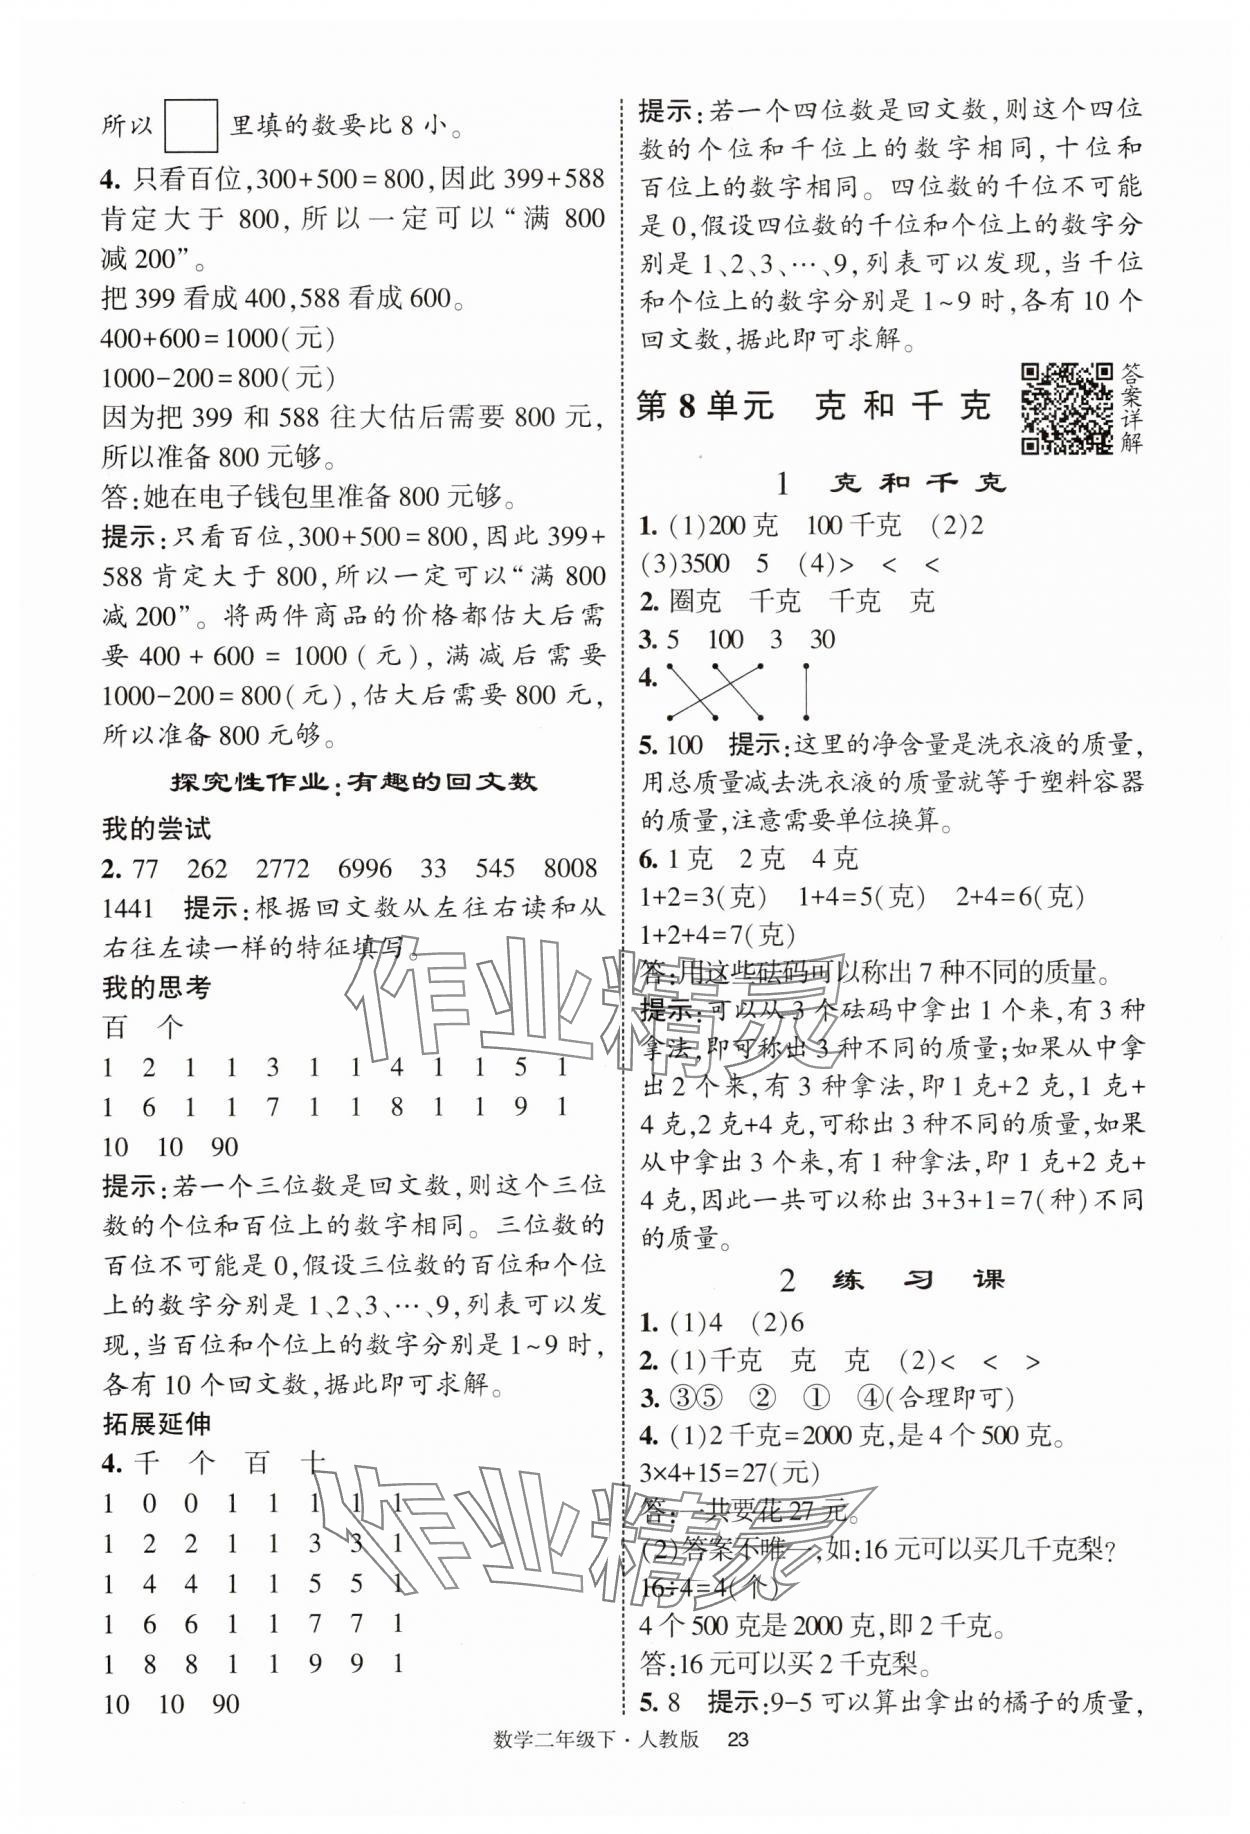 所以 □ 里填的数要比 8 小。
4. 只看百位,300+500=800,因此 399+588
肯定大于 800,所以一定可以“满 800
减 200”。
把 399 看成 400,588 看成 600。
400+600=1000(元)
1000-200=800(元)
因为把 399 和 588 往大估后需要 800 元,
所以准备 800 元够。
答:她在电子钱包里准备 800 元够。
提示:只看百位,300+500=800,因此 399+
588 肯定大于 800,所以一定可以“满 800
减 200”。将两件商品的价格都估大后需
要 400+600=1000(元),满减后需要
1000-200=800(元),估大后需要 800 元,
所以准备 800 元够。
探究性作业:有趣的回文数
我的尝试
2. 77 262 2772 6996 33 545 8008
1441 提示:根据回文数从左往右读和从
右往左读一样的特征填写。
我的思考
百 个
1 2 1 1 3 1 1 4 1 1 5 1
1 6 1 1 7 1 1 8 1 1 9 1
10 10 90
提示:若一个三位数是回文数,则这个三位
数的个位和百位上的数字相同。三位数的
百位不可能是 0,假设三位数的百位和个位
上的数字分别是 1、2、3、…、9,列表可以发
现,当百位和个位上的数字分别是 1~9 时,
各有 10 个回文数,据此即可求解。
拓展延伸
4. 千 个 百 十
1 0 0 1 1 1 1 1
1 2 2 1 1 3 3 1
1 4 4 1 1 5 5 1
1 6 6 1 1 7 7 1
1 8 8 1 1 9 9 1
10 10 90
提示:若一个四位数是回文数,则这个四位
数的个位和千位上的数字相同,十位和
百位上的数字相同。四位数的千位不可能
是 0,假设四位数的千位和个位上的数字分
别是 1、2、3、…、9,列表可以发现,当千位
和个位上的数字分别是 1~9 时,各有 10 个
回文数,据此即可求解。
第 8 单元 克和千克
答案详解
1 克和千克
1. (1)200 克 100 千克 (2)2
(3)3500 5 (4)> < <
2. 圈克 千克 千克 克
3. 5 100 3 30
4.
5. 100 提示:这里的净含量是洗衣液的质量,
用总质量减去洗衣液的质量就等于塑料容器
的质量,注意需要单位换算。
6. 1 克 2 克 4 克
1+2=3(克) 1+4=5(克) 2+4=6(克)
1+2+4=7(克)
答:用这些砝码可以称出 7 种不同的质量。
提示:可以从 3 个砝码中拿出 1 个来,有 3 种
拿法,即可称出 3 种不同的质量;如果从中拿
出 2 个来,有 3 种拿法,即 1 克+2 克,1 克+
4 克,2 克+4 克,可称出 3 种不同的质量,如果
从中拿出 3 个来,有 1 种拿法,即 1 克+2 克+
4 克,因此一共可以称出 3+3+1=7(种)不同
的质量。
2 练习课
1. (1)4 (2)6
2. (1)千克 克 克 (2)< < >
3. ③⑤ ② ① ④(合理即可)
4. (1)2 千克=2000 克,是 4 个 500 克。
3×4+15=27(元)
答:一共要花 27 元。
(2)答案不唯一,如:16 元可以买几千克梨?
16÷4=4(个)
4 个 500 克是 2000 克,即 2 千克。
答:16 元可以买 2 千克梨。
5. 8 提示:9-5 可以算出拿出的橘子的质量,
数学二年级下·人教版 23
作业精灵
作业精灵